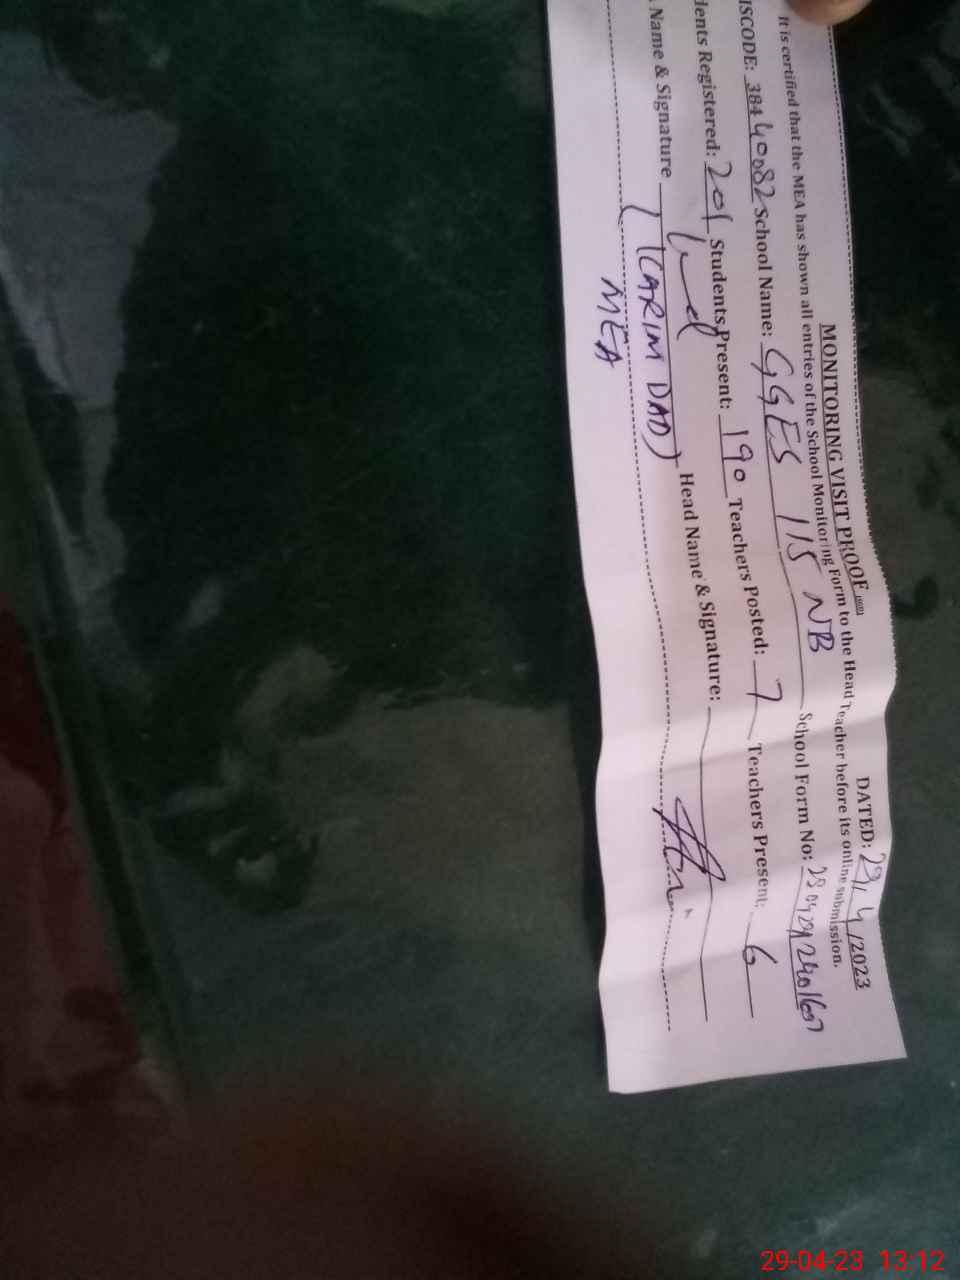 MONITORING VISIT PROOF DATED: 29/4/2023
It is certified that the MEA has shown all entries of the School Monitoring Form to the Head Teacher before its online submission.
ISCODE: 38440082 School Name: GGES 115 NB School Form No:
dents Registered: 201 Students Present: 190 Teachers Posted: 7 Teachers Present: 6
Name & Signature Head Name & Signature:
(KARIM DAD)
MEA
29-04-23 13:12